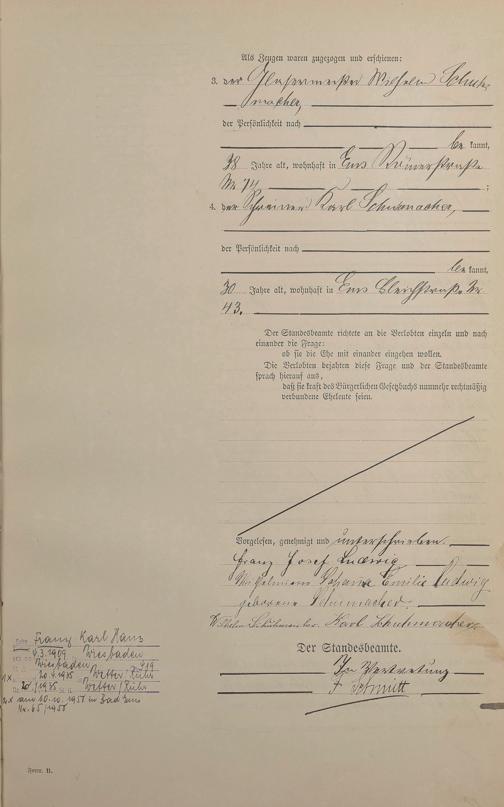 Als Zeugen waren zugezogen und erschienen:
3. der Glasermeister Wilhelm Schuh-
macher,
der Persönlichkeit nach
be kannt,
38 Jahre alt, wohnhaft in Ems Römerstraße
Nr. 74 ;
4. der Schreiner Karl Schumacher,
der Persönlichkeit nach
be kannt,
30 Jahre alt, wohnhaft in Ems Bleichstraße Nr
43.
Der Standesbeamte richtete an die Verlobten einzeln und nach
einander die Frage:
ob sie die Ehe mit einander eingehen wollen.
Die Verlobten bejahten diese Frage und der Standesbeamte
sprach hierauf aus,
daß sie kraft des Bürgerlichen Gesetzbuchs nunmehr rechtmäßig
verbundene Eheleute seien.
Vorgelesen, genehmigt und unterschrieben.
Franz Josef Ludwig
Emilie Ludwig
geborene Schumacher.
Karl Schuhmacher.
Der Standesbeamte.
In Vertretung
F Schmitt
Franz Karl Hans
4.3.1909 Wiesbaden
Wiesbaden 419
1x. 20.4.1935 Wetter Ruhr
20/1935 Wetter/Ruhr
2x am 10.10.1958 in Bad Ems
Nr. 65/1958
Form. B.